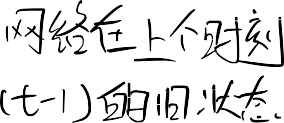 网络在上个时刻
(t-1)的旧状态.